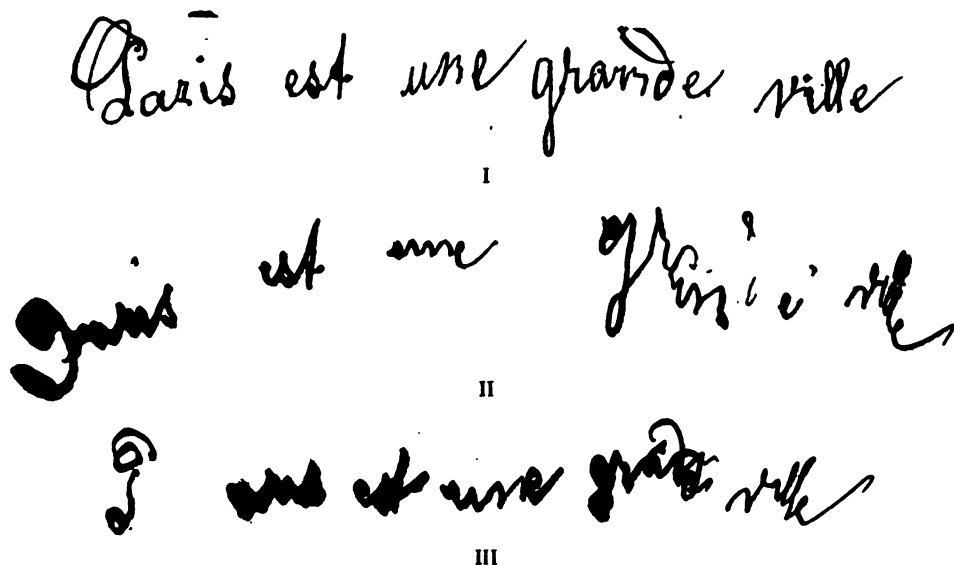 Paris est une grande ville
I
Paris est une grande ville
II
Paris est une grande ville
III